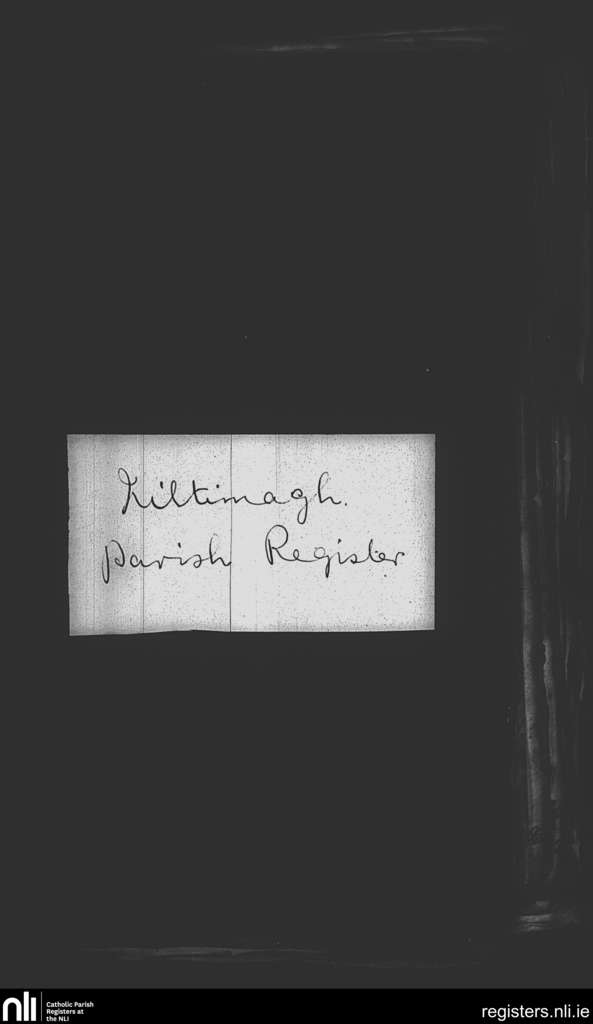 Kiltimagh.
Parish Register
nli
Catholic Parish
Registers at
the NLI
registers.nli.ie